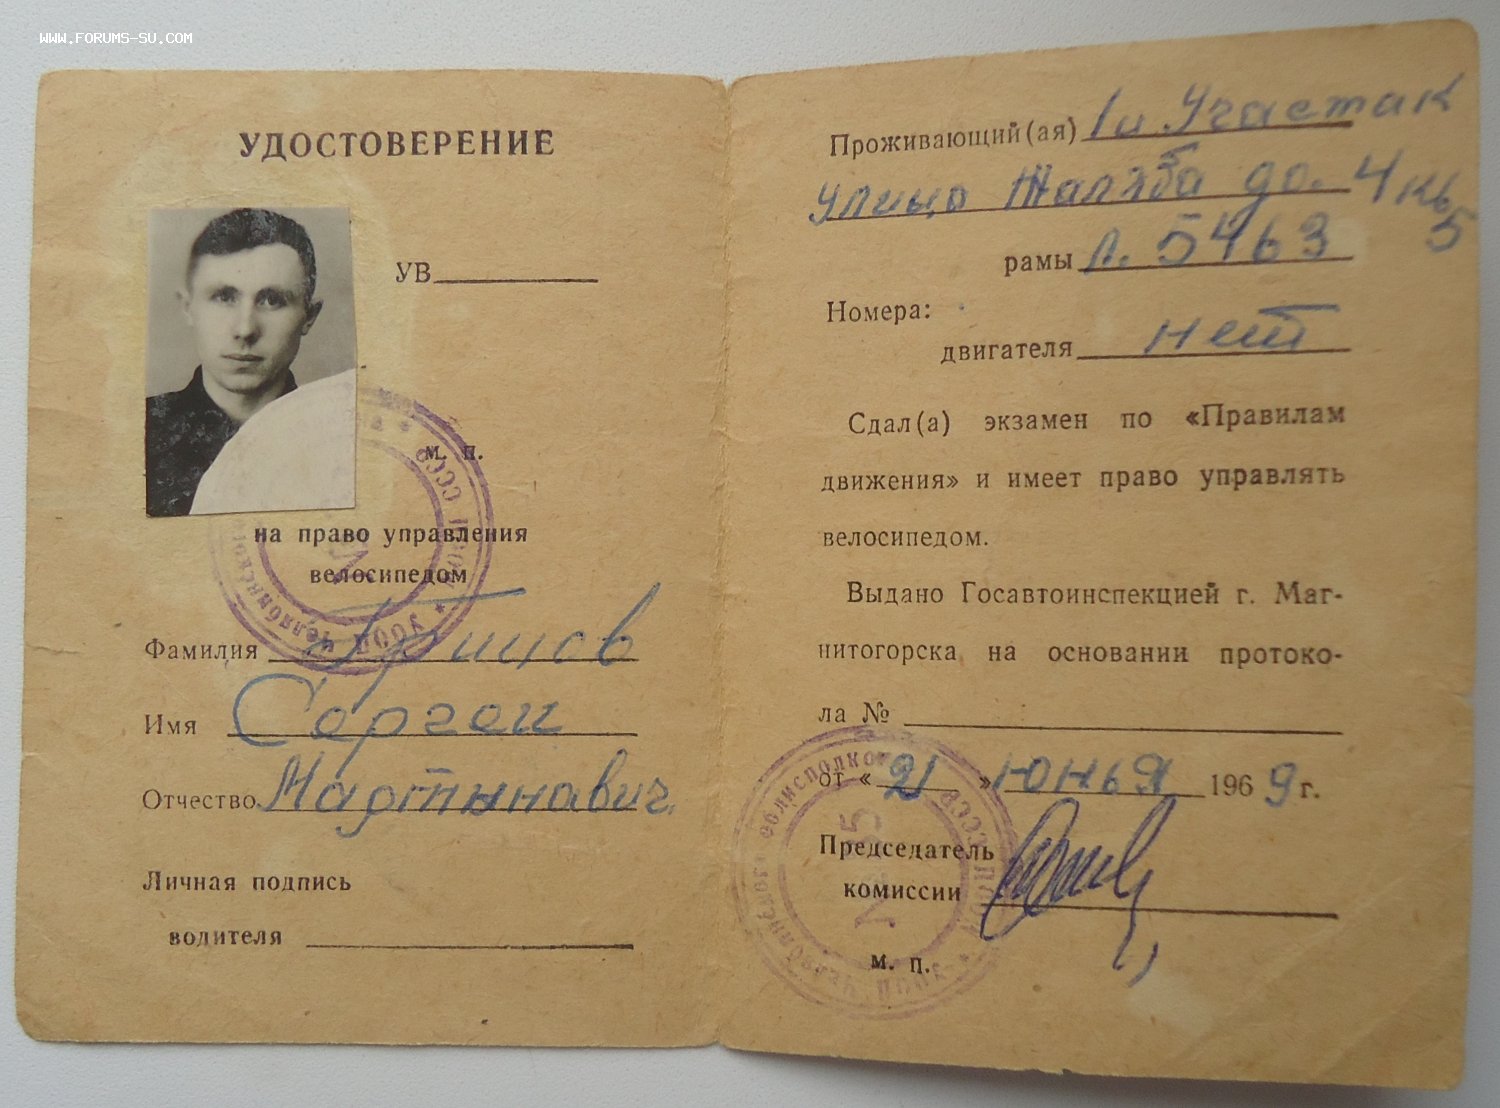 WWW.FORUMS-SU.COM
УДОСТОВЕРЕНИЕ
УВ
м. п.
на право управления
велосипедом
Фамилия
Имя Сергей
Отчество Мартынавич
Личная подпись
водителя
Проживающий(ая) 1й Участак
улица Жаляба до. 4 кв 5
рамы Л. 5463
Номера:
двигателя нет
Сдал(а) экзамен по «Правилам
движения» и имеет право управлять
велосипедом.
Выдано Госавтоинспекцией г. Маг-
нитогорска на основании протоко-
ла №
от « 21 » Юнья 1969 г.
Председатель
комиссии
м. п.